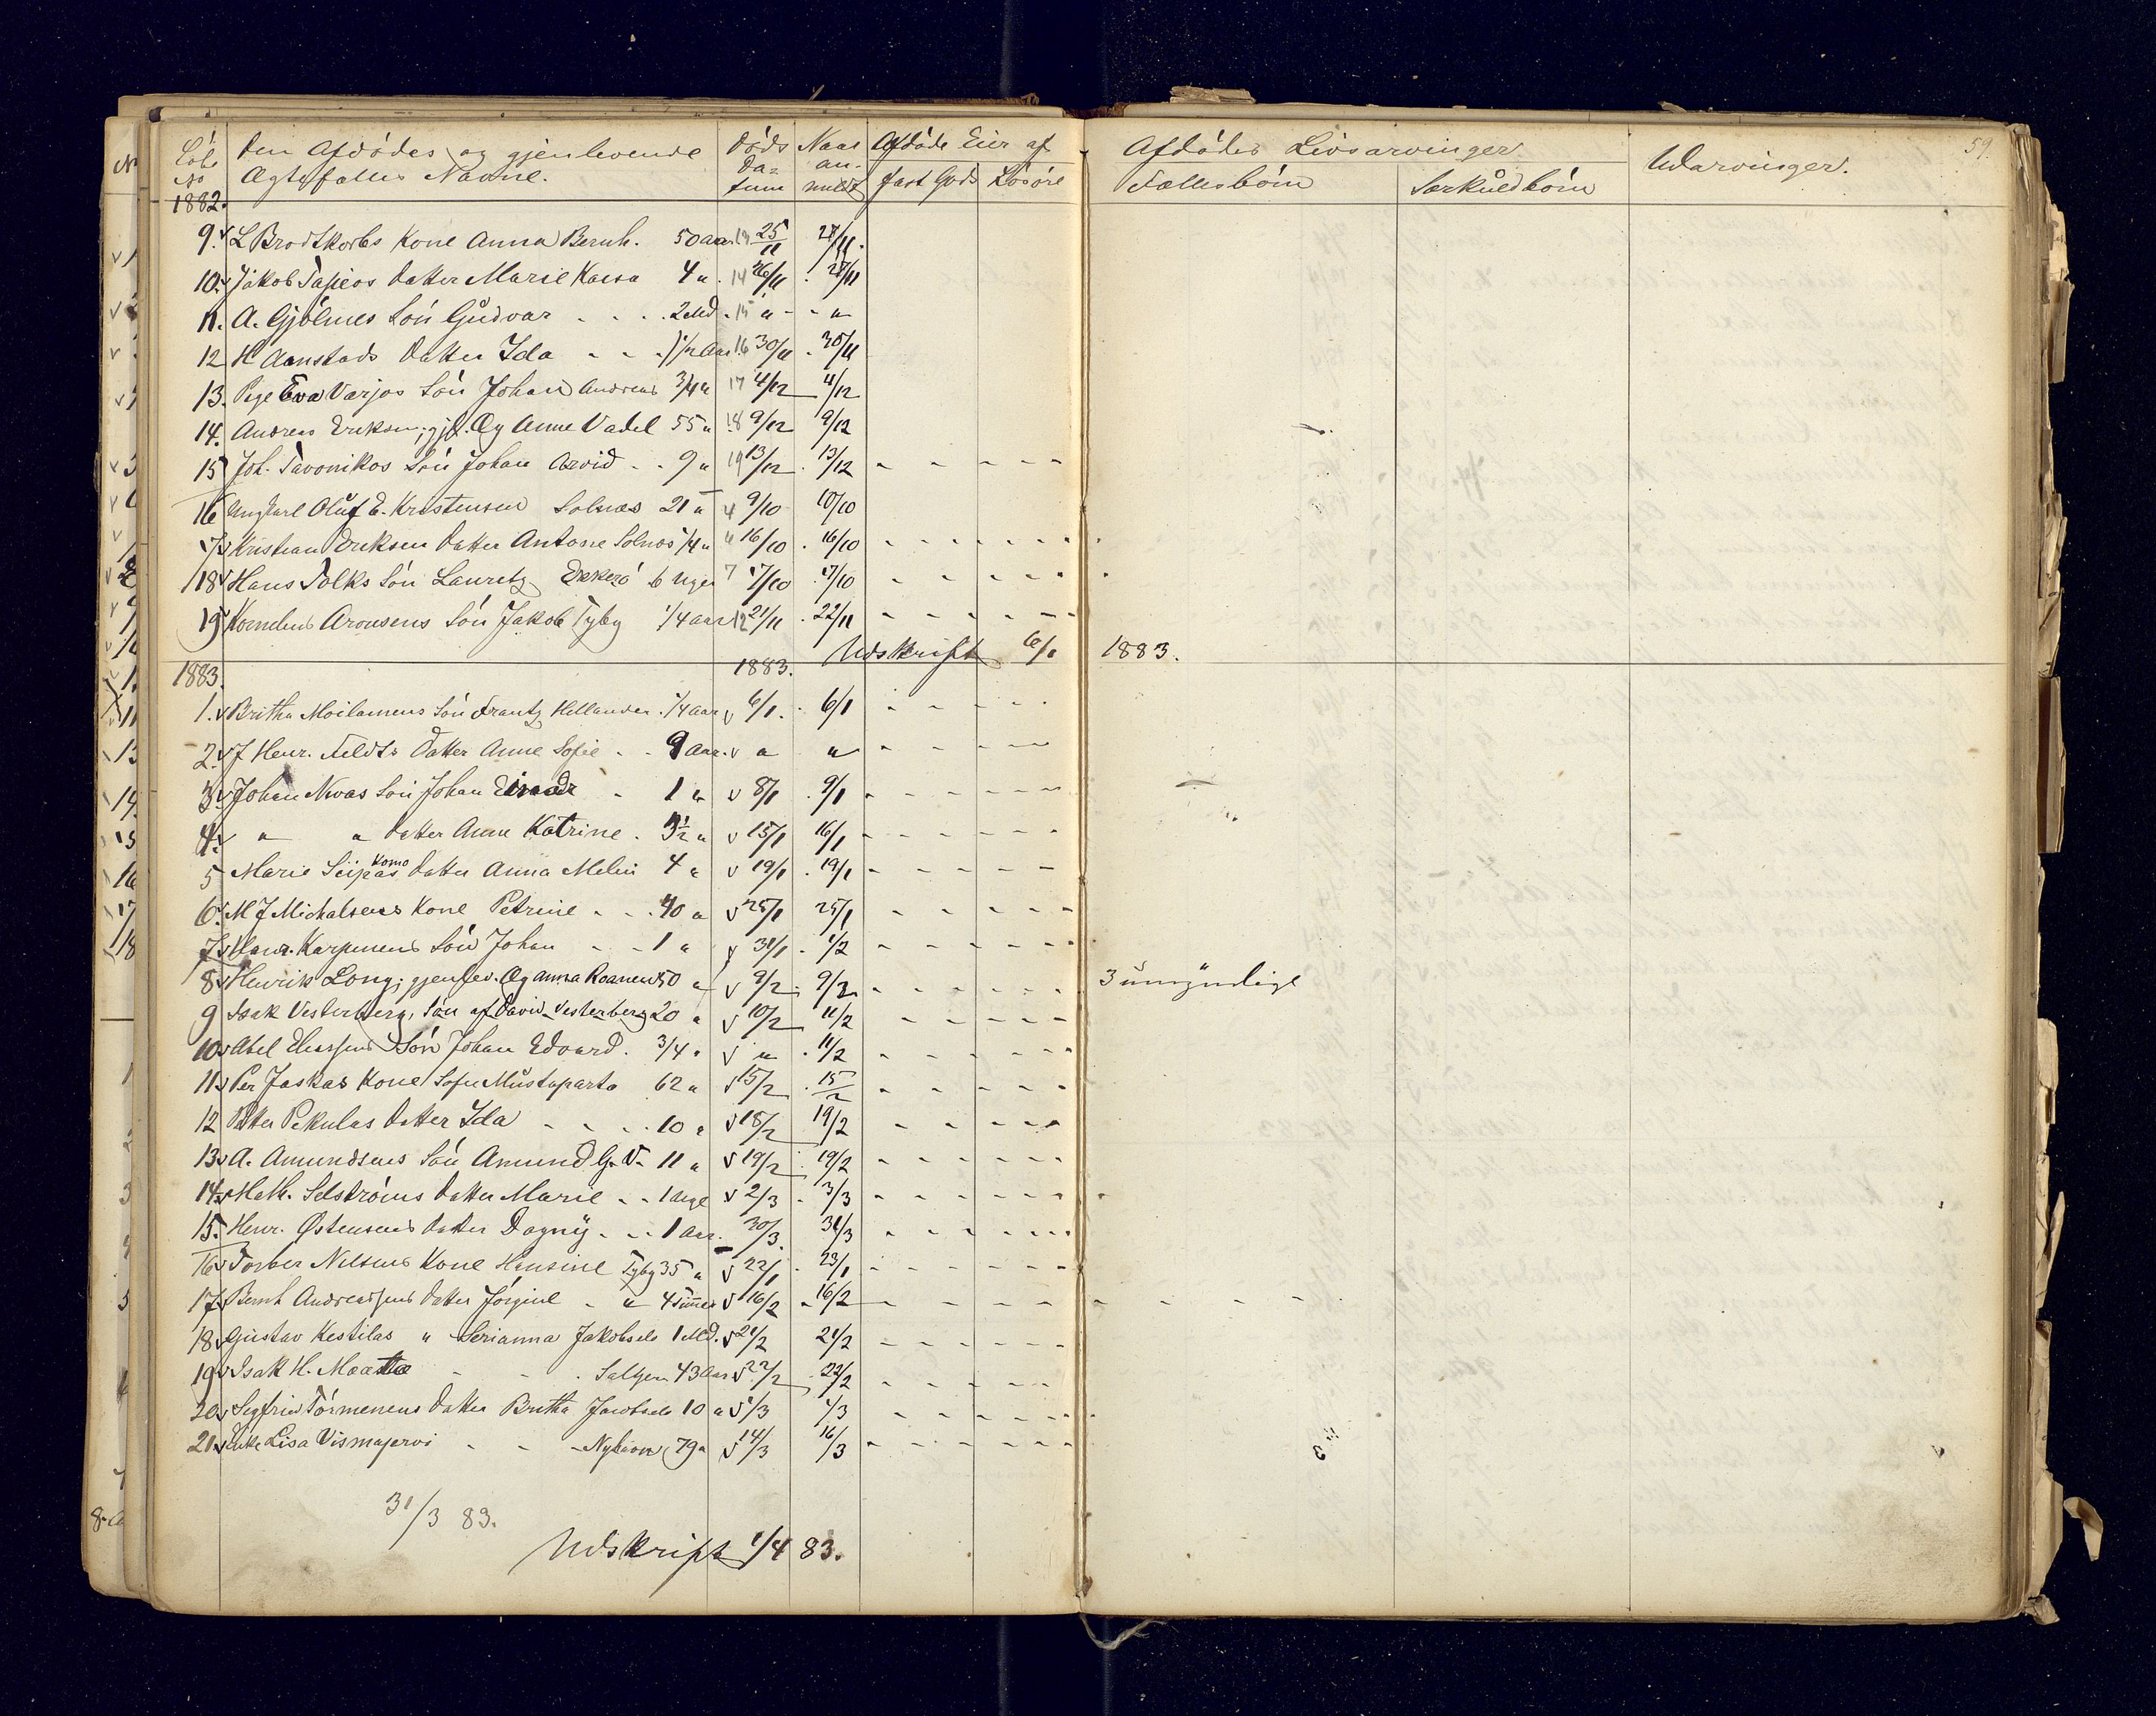 Löbe No
Den Afdödes og gjenlevende Ægtefælles Navne.
Döds Datum
Naar anmeldt
Afdöde Eier af
fast Gods
Lösöre
Afdödes Livsarvinger
Fællesbörn
Særkuldbörn
Udarvinger.
59.
1882.
9. L Brodtkorbs Kone Anna Bernh. 50 aar 13 25/11 27/11.
10. Jakob Tapios Datter Marie Kaisa 4 " 14 26/11 27/11
11. A. Gjölmes Sön Gudvar - - - 2 Md. 15 " - - "
12 H Aanstads Datter Ida - - 1 1/2 Aar 16 30/11 - 30/11
13. Pige Eva Varjos Sön Johan Andreas 3/4 " 17 4/12 4/12
14. Andreas Eriksen; gjl. Æg Anne Vadel 55 " 18 9/12 9/12
15 Joh. Tavonikos Sön Johan Arvid - - 9 " 19 13/12 13/12 - - - - -
16 Ungkarl Oluf E. Kristensen Solnæs 21 " 4 9/10 10/10
17 Kristian Eriksen Datter Antone Solnæs 1/4 " 6 16/10 16/10 - - - - -
18 Hans Tolks Sön Lauretz Ekkerö 6 Uger 7 17/10 17/10 - - - -
19 Kornelius Aronsens Sön Jakob Tyby 1/4 aar 12 21/11 22/11 - - - - -
Udskrift 6/1 1883.
1883. 1883.
1. Britha Moilanens Sön Frantz Hellander 1/4 aar 6/1. 6/1 - - - - -
2. J Henr. Feldts Datter Anne Sofie - - 9 aar. " " - - - - -
3 Johan Nivas Sön Johan Einar - 1 " 8/1 9/1 - - - - -
4. " " Datter Anne Katrine. 3 1/2 " 15/1 16/1 - - - - -
5 Marie Seipas Kono Datter Anna Melin 4 " 19/1 19/1 - - - - -
6. M J Michalsens Kone Petrine - - 40 " 25/1 25/1 - - - - -
7. Henr. Karpinens Sön Johan - - 1 " 31/1 1/2 - - - - -
8 Henrik Long; gjenlev. Æg Anna Roanen 50 " 9/2 9/2 - - - - - 3 umyndige
9 Isak Vesterberg, Sön af David Vesterberg 20 " 10/2 11/2 - - - - -
10 Abel Eliassens Sön Johan Edvard. 3/4 " " 11/2 - - - - -
11 Per Jaskas Kone Sofie Mustaparta 62 " 15/2 15/2 - - - - -
12 Petter Pekulas Datter Ida - - - 10 " 18/2 19/2 - - - - -
13 A. Amundsens Sön Amund G. V. 11 " 19/2 19/2 - - - - -
14 Math. Selströms Datter Marie - - 1 Uge 2/3 - 3/3 - - - - -
15. Henr. Østensens Datter Dagny - - 1 Aar. 30/3. 31/3 - - - - -
16 Torber Nilsens Kone Hansine Tyby 35 " 22/1 23/1 - - - - -
17. Bernh Andreassens Datter Jörgine - " 4 Timer 16/2 - 16/2 - - - - - - - - -
18 Gustav Kestilas " Serianna Jakobselv 1 Md. 21/2 21/2 - - - - -
19 Isak H. Maatta - - Saltjern 43 Aar 22/2 22/2 - - - - -
20 Segfrid Törmenens Datter Britha Jacobselv 10 " 1/3 1/3 - - - - -
21 Enke Lisa Vismajervi - - - Nybion 79 " 14/3 16/3 - - - - -
31/3 83.
Udskrift 1/4 83.